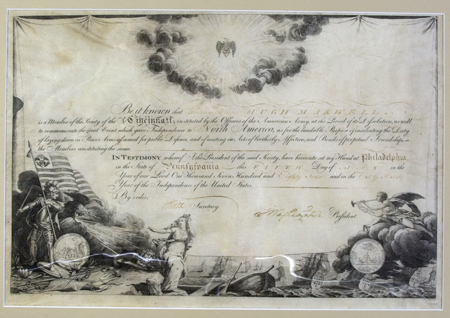 Be it known that HUGH MAXWELL
is a Member of the Society of the Cincinnati; instituted by the Officers of the American Army, at the Period of its Dissolution, as well
to commemorate the great Event which gave Independence to North America, as for the laudable Purpose of inculcating the Duty
of laying down in Peace Arms assumed for public Defence, and of uniting in Acts of brotherly Affection, and Bonds of perpetual Friendship,
the Members constituting the same.
IN TESTIMONY whereof I, the President of the said Society, have hereunto set my Hand at Philadelphia
in the State of Pennsylvania this Day of in the
Year of our Lord One Thousand Seven Hundred and Eighty and in the
Year of the Independence of the United States.
By order,
Secretary
G Washington President.